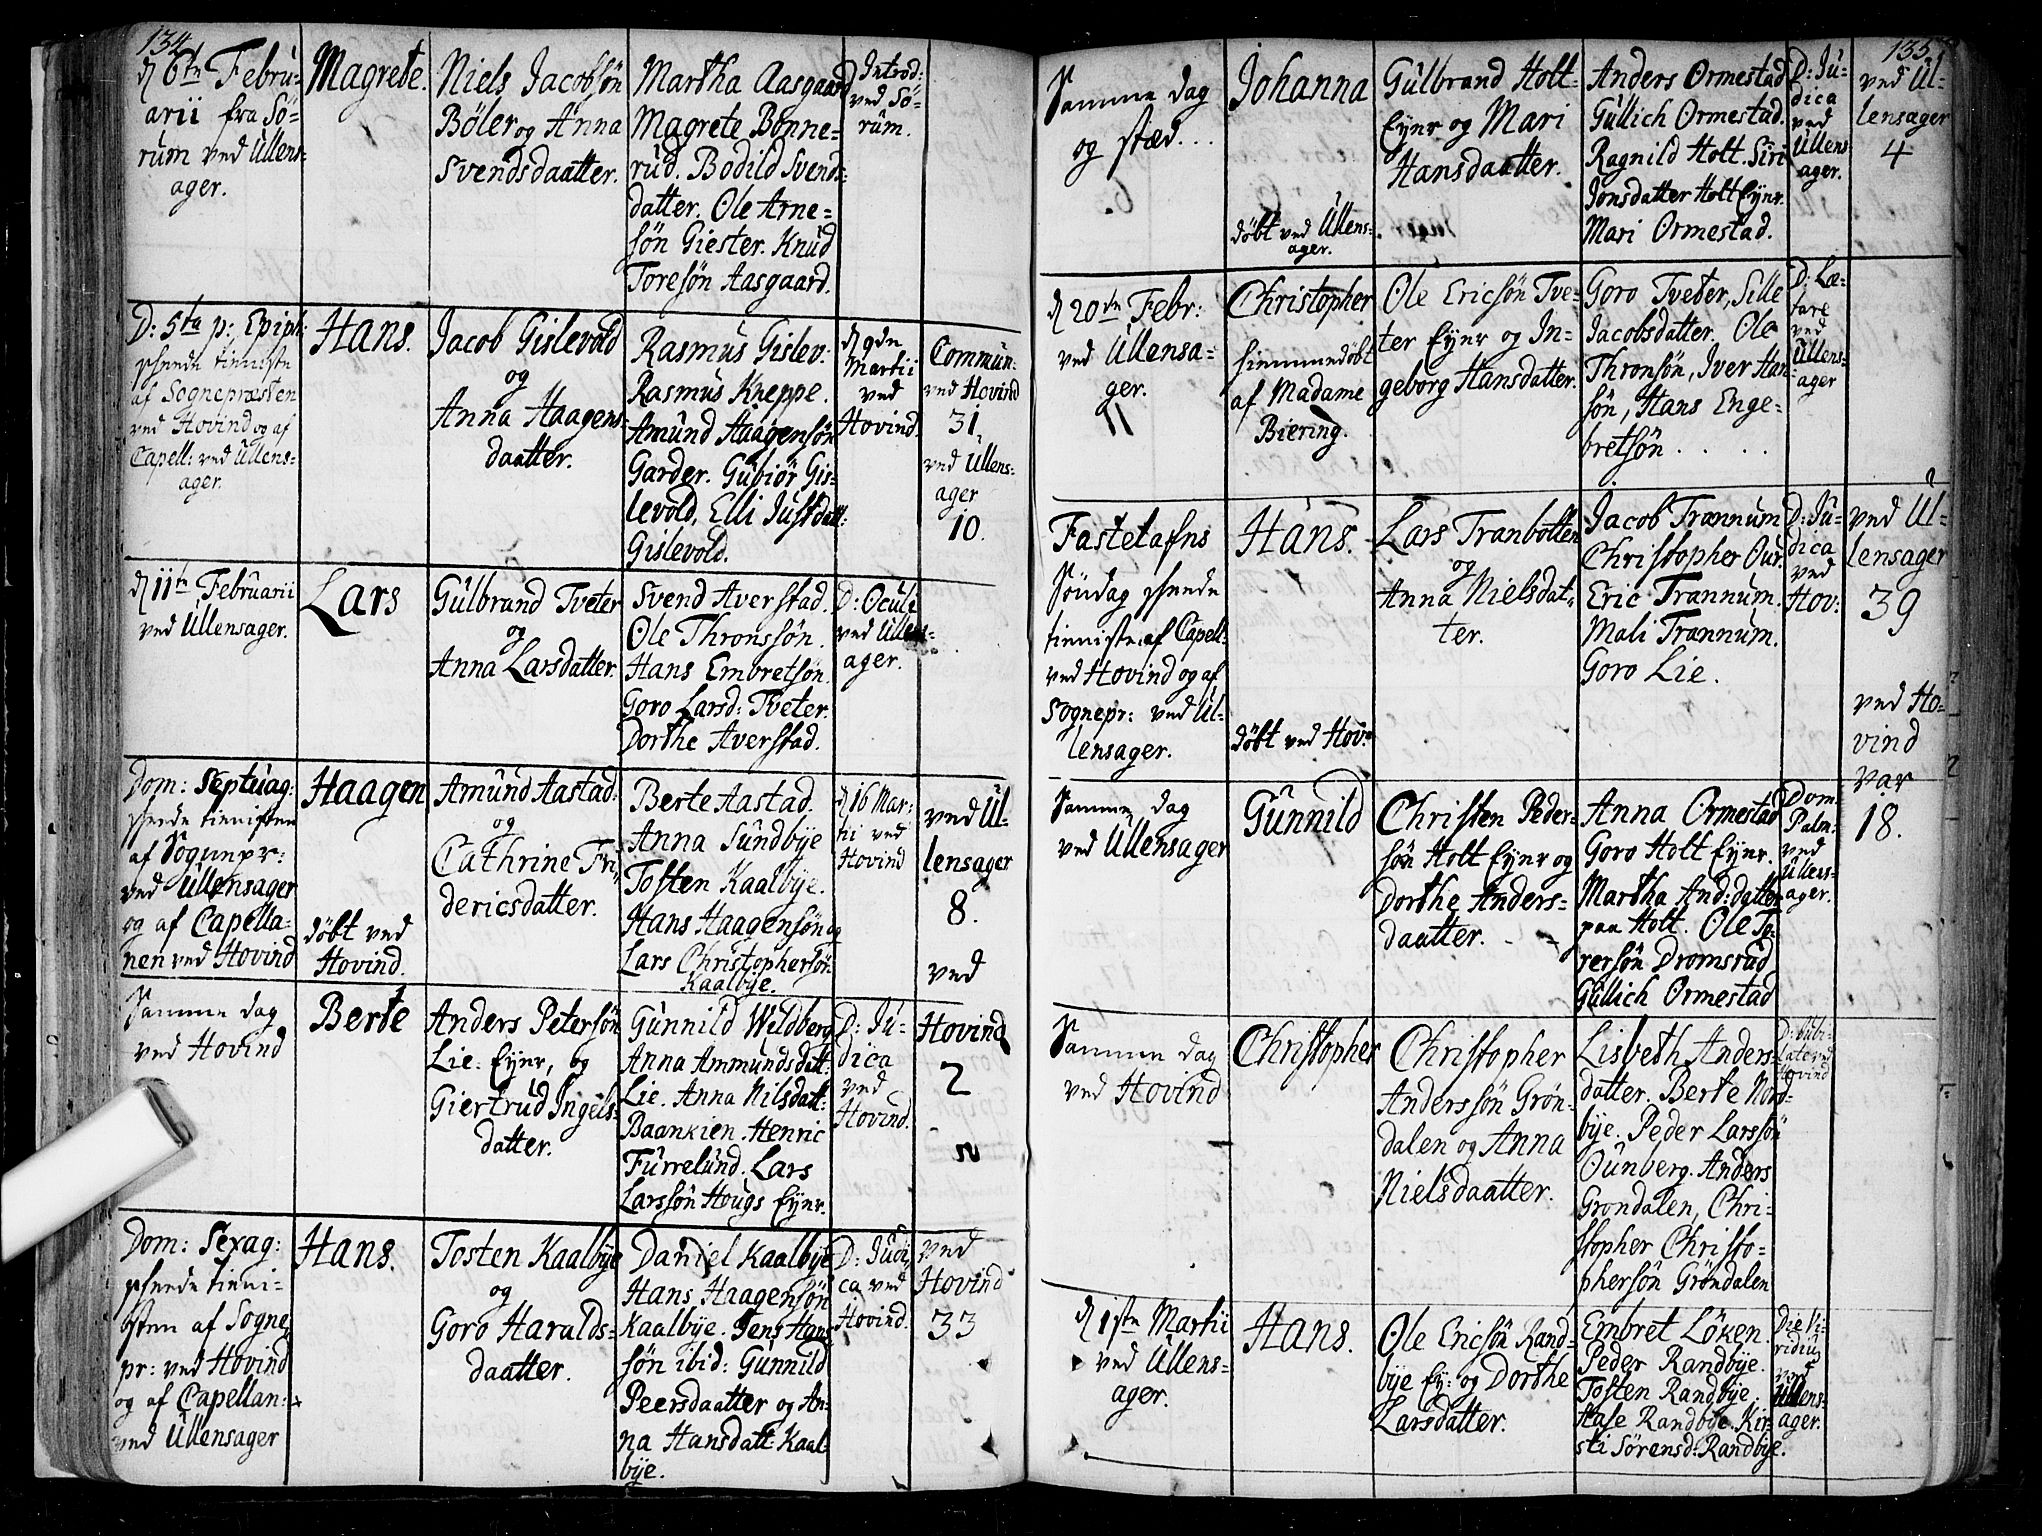 134
d 6te Febru-
arii fra Sö-
rum ved Ullens-
ager.
Magrete.
Niels Jacobsön
Böler og Anna
Svendsdaatter.
Martha Aasgaard
Magrete Bonne-
rud. Bodild Svends-
datter. Ole Arne-
sön Giester. Knud
Toresön Aasgaard.
Introd:
ved Sö-
rum.
D: 5ta p: Epiph:
skeede tienniste
af Sognepræsten
ved Hovind og af
Capell: ved Ullens-
ager.
Hans.
Jacob Gislevold
og
Anna Haagens-
daatter.
Rasmus Gislev:
Rasmus Kneppe.
Amund Haagensön
Garder. Gubiör Gis-
levold, Elli Justdatt:
Gislevold.
d 9de
Martii
ved
Hovind.
Commun:
ved Hovind
31.
ved Ullens-
ager
10.
d 11te Februarii
ved Ullensager.
Lars
Gulbrand Tveter
og
Anna Larsdatter.
Svend Averstad.
Ole Thronssön.
Hans Embretsön.
Goro Larsd: Tveter.
Dorthe Averstad.
D: Oculi
ved Ullens-
ager.
Dom: Septuag:
skeede tiennisten
af Sognepr:
ved Ullensager
og af Capella-
nen ved Hovind
Haagen
döbt ved
Hovind.
Amund Aastad:
og
Cathrine Fri-
dericsdatter.
Berte Aastad.
Anna Sundbye
Tosten Kaalbye.
Hans Haagensön og
Lars Christophersön
Kaalbye.
d 16 Mar-
tii ved
Hovind
ved Ul-
lensager
8.
ved
Samme dag
ved Hovind
Berte
Anders Petersön
Lie. Eyer, og
Giertrud Ingels-
datter.
Gunnild Wildberg
Anna Ammundsdatt:
Lie. Anna Nilsdatt:
Baankien. Henric
Furrelund. Lars
Larssön Hougs Eyer.
D: Ju-
dica
ved
Hovind.
Hovind
2
Dom: Sexag:
skeede tienni-
sten af Sogne-
pr: ved Hovind
og af Capellan:
ved Ullensager
Hans.
Tosten Kaalbye
og
Goro Haralds-
daatter.
Daniel Kaalbye
Hans Haagensön
Kaalbye. Jens Hans
sön ibid: Gunnild
Peersdaatter og An-
na Hansdatt: Kaal-
bye.
D: Judi-
ca ved
Hovind.
ved
Hovind
33
135
Samme dag
og stæd...
Johanna
döbt ved Ullens-
ager.
Gulbrand Holt-
Eyer og Mari
Hansdaatter.
Anders Ormestad
Gullich Ormestad.
Ragnild Holt. Siri
Jonsdatter Holt Eyer.
Mari Ormestad.
D: Ju-
dica
ved
Ullens
ager.
ved Ul-
lensager
4
d 20de Febr:
ved Ullensa-
ger.
Christopher
hiemmedöbt
af Madame
Biering.
Ole Ericsön Tve-
ter Eyer og In-
geborg Hansdatter.
Goro Tveter, Sille
Jacobsdatter. Ole
Thronsön, Iver Han-
sön, Hans Enge-
bretsön . . . .
D: Læ-
tare
ved
Ullens-
ager
Fastelafns
Söndag skeede
tienniste af Capell:
ved Hovind og af
Sognepr: ved Ul-
lensager.
Hans.
döbt ved Hov:
Lars Tranbotten
og
Anna Nielsdat-
ter.
Jacob Trannum
Christopher Our.
Eric Trannum.
Mali Trannum.
Goro Lie.
D: Ju-
dica
ved
Hov:
ved Ul-
lensager
39
ved Ho-
vind
var
18.
Samme dag
ved Ullensager
Gunnild
Christen Peder-
sön Holt Eyer og
Dorthe Anders-
daatter.
Anna Ormestad
Goro Holt Eyer.
Martha And: datter
paa Holt. Ole To-
rersön Dromsrud
Gullich Ormestad
Dom:
Palm:
ved
Ullens-
ager.
Samme dag
ved Hovind
Christopher
Christopher
Anderssön Grön-
dalen og Anna
Nielsdaatter.
Lisbeth Anders-
datter. Berte Nord-
bye. Peder Larssön
Ounberg. Anders
Grondalen, Chri-
stopher Christo-
phersön Gröndalen
D: Jubi-
late ved
Hovind
d 1ste Martii
ved Ullens-
ager.
Hans.
Ole Ericsön Rand-
bye Ey: og Dorthe
Larsdatter.
Embret Löken.
Peder Randbye.
Tosten Randbye.
Aase Randbye. Kir-
sti Sörensd: Randbye.
Die Vi-
ridium
ved
Ullens-
ager.